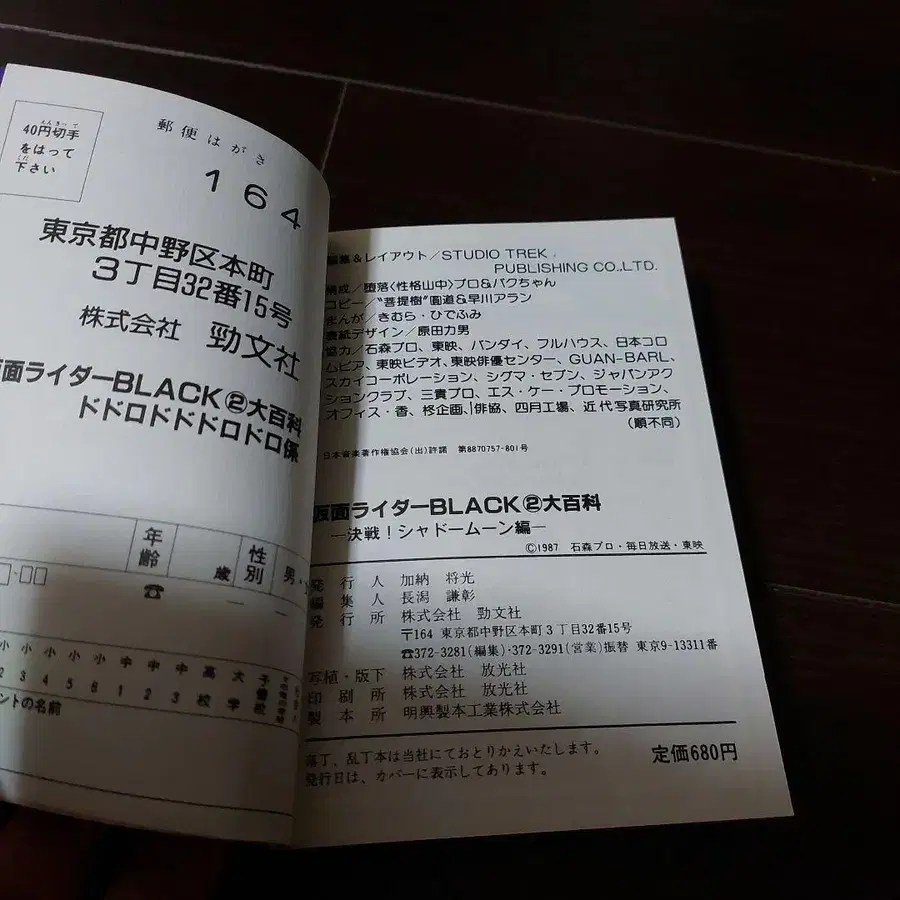 40円切手
をはって
下さい
郵便はがき
164
東京都中野区本町
3丁目32番15号
株式会社 勁文社
面ライダーBLACK②大百科
ドドロドドドロドロ係
年齢
歳
性別
男・
☎
小 小 小 小 小 中 中 中 高 大 子
2 3 4 5 6 1 2 3 校 学 備校
ントの名前
編集&レイアウト/STUDIO TREK
PUBLISHING CO.,LTD.
構成/堕落〈性格山中〉プロ&バクちゃん
コピー/“菩提樹”圓道&早川アラン
まんが/きむら・ひでふみ
表紙デザイン/原田力男
協力/石森プロ、東映、バンダイ、フルハウス、日本コロ
ムビア、東映ビデオ、東映俳優センター、GUAN-BARL、
スカイコーポレーション、シグマ・セブン、ジャパンアク
ションクラブ、三貴プロ、エス・ケー・プロモーション、
オフィス・香、柊企画、俳協、四月工場、近代写真研究所
(順不同)
日本音楽著作権協会(出)許諾 第8870757-801号
仮面ライダーBLACK②大百科
—決戦!シャドームーン編—
©1987 石森プロ・毎日放送・東映
発行人 加納 将光
編集人 長潟 謙彰
発行所 株式会社 勁文社
〒164 東京都中野区本町3丁目32番15号
☎372-3281(編集)・372-3291(営業)振替 東京9-13311番
写植・版下 株式会社 放光社
印刷所 株式会社 放光社
製本所 明興製本工業株式会社
落丁、乱丁本は当社にておとりかえいたします。
発行日は、カバーに表示してあります。
定価680円